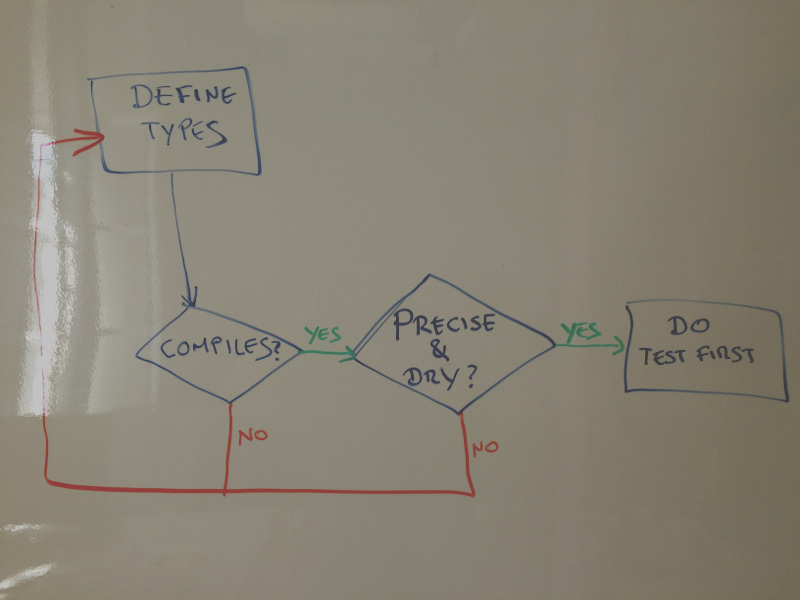 DEFINE
TYPES
COMPILES?
YES
PRECISE
&
DRY?
YES
DO
TEST FIRST
NO
NO